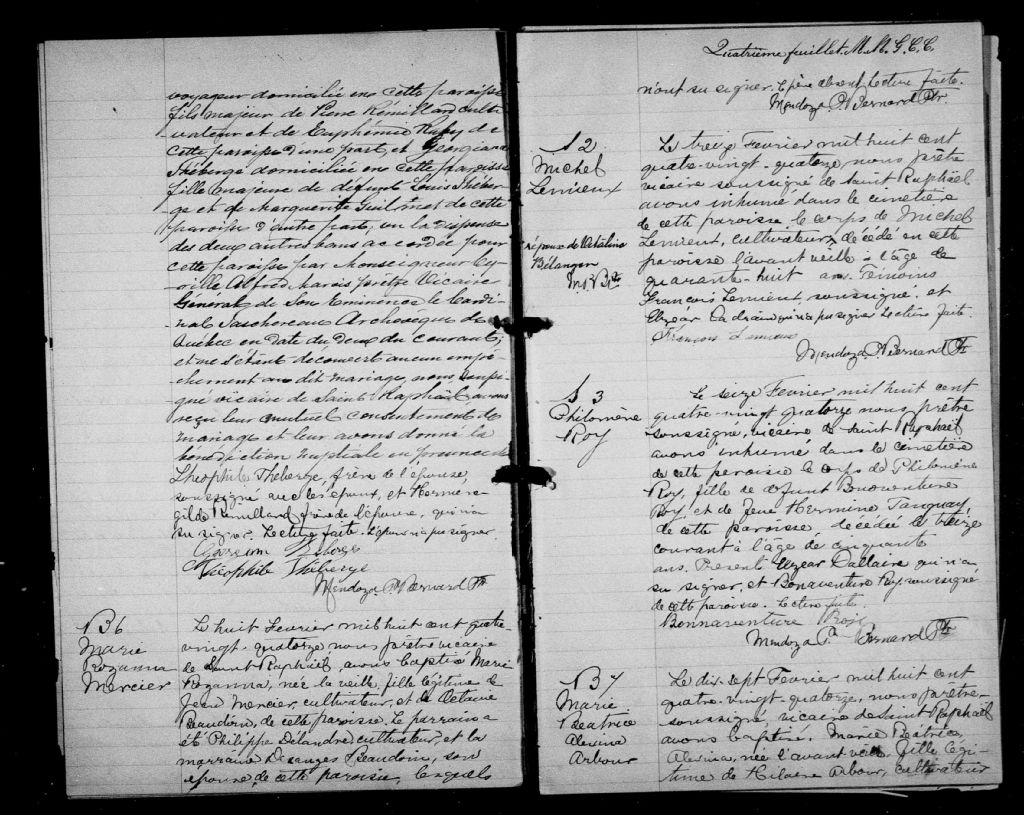 voyageur domicilié en cette paroisse
fils majeur de Pierre Rémillard culti-
vateur et de Euphémie Ruby de
cette paroisse d'une part, et Georgiana
Théberge domiciliée en cette paroisse
fille majeure de défunt Louis Théber-
ge et de Marguerite Guilmet de cette
paroisse d'autre part; vu la dispense
des deux autres bans accordée pour
cette paroisse par Monseigneur Cy-
rille Alfred Marois prêtre Vicaire
Général de Son Eminence le Cardi-
nal Taschereau Archevêque de
Québec en date du deux du courant;
et ne s'étant découvert aucun empê-
chement au dit mariage, nous, soussi-
gné vicaire de Saint Raphaël avons
reçu leur mutuel consentement de
mariage et leur avons donné la
bénédiction nuptiale en présence de
Théophile Théberge, frère de l'épouse,
soussigné avec les époux, et Herméné-
gilde Rémillard frère de l'époux, qui n'a
su signer. Lecture faite.
Théophile Théberge
Mendoza P. Bernard Ptr
B 6
Marie
Rozanna
Mercier
Le huit Fevrier mil huit cent quatre-
vingt-quatorze nous prêtre vicaire
de Saint Raphaël, avons baptisé Marie
Rozanna, née la veille, fille légitime de
Jean Mercier, cultivateur, et de Octavie
Beaudoin, de cette paroisse. Le parrain a
été Philippe Delandre, cultivateur, et la
marraine Desanges Beaudoin, son
épouse de cette paroisse, lesquels
Quatrième feuillet. M. M. G. C. C.
n'ont su signer. Le père absent. Lecture faite.
Mendoza P. Bernard Ptr
S 2
Michel
Lemieux
époux de
Bélanger
Le treize Fevrier mil huit cent
quatre-vingt-quatorze, nous prêtre
vicaire soussigné de Saint Raphaël
avons inhumé dans le cimetière
de cette paroisse le corps de Michel
Lemieux, cultivateur, décédé en cette
paroisse l'avant veille à l'âge de
quarante-huit ans. Témoins
François Lemieux, soussigné, et
Elzéar qui n'a pu signer Lecture faite.
François Lemieux
Mendoza P. Bernard Ptr
S 3
Philomène
Roy
Le seize Fevrier mil huit cent
quatre-vingt quatorze nous prêtre
soussigné, vicaire de Saint Raphaël
avons inhumé dans le cimetière
de cette paroisse le corps de Philomène
Roy, fille de défunt Bonaventure
Roy, et de feue Hermine Tanguay,
de cette paroisse décédée le treize
courant à l'âge de cinquante
ans. Présent Elzear Dallaire qui n'a
su signer, et Bonaventure Roy, soussigné
de cette paroisse. Lecture faite.
Bonnaventure Roy
Mendoza P. Bernard Ptr
B 7
Marie
Beatrice
Alexina
Arbour
Le dix-sept Fevrier mil huit cent
quatre-vingt-quatorze, nous prêtre-
soussigné, vicaire de Saint Raphaël
avons baptisé, Marie Béatrice
Alexina, née l'avant veille fille légi-
time de Hilaire Arbour, cultivateur